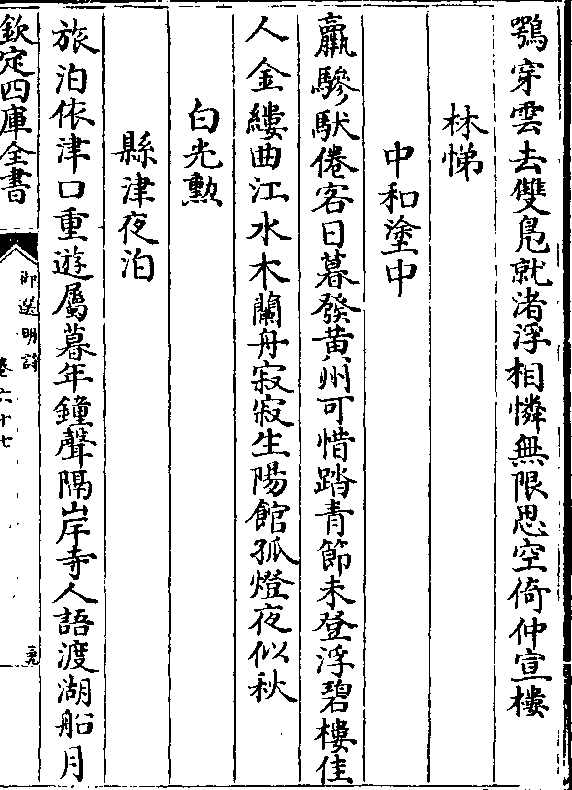 鶚穿雲去雙鳧就渚浮相憐無限思空倚仲宣樓
林悌
中和塗中
羸驂馱倦客日暮發黄州可惜踏青節未登浮碧樓佳
人金縷曲江水木蘭舟寂寂生陽館孤燈夜似秋
白光勲
縣津夜泊
旅泊依津口重遊屬暮年鐘聲隔岸寺人語渡湖船月
欽定四庫全書
御選明詩
卷六十七